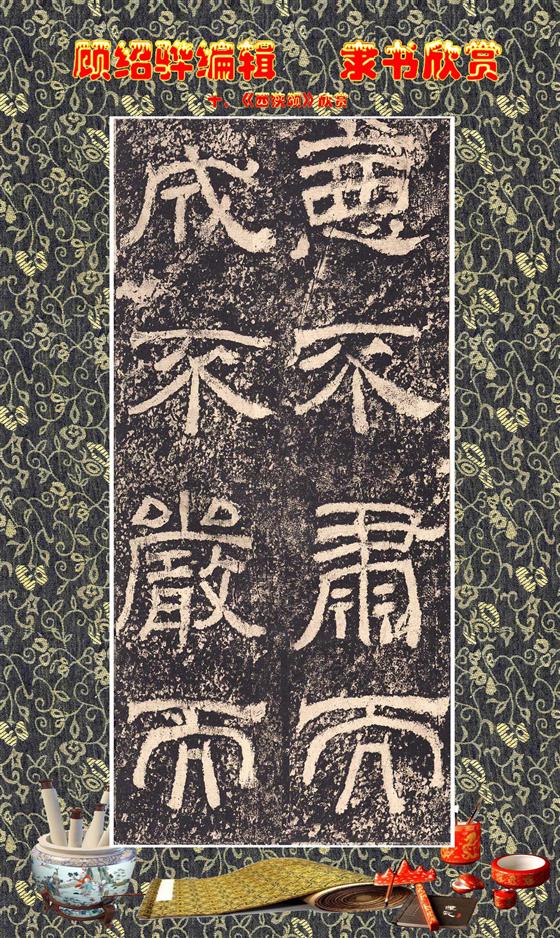 顾绍骅编辑 隶书欣赏
十、《西狭颂》欣赏
惡不肅而
成不嚴而